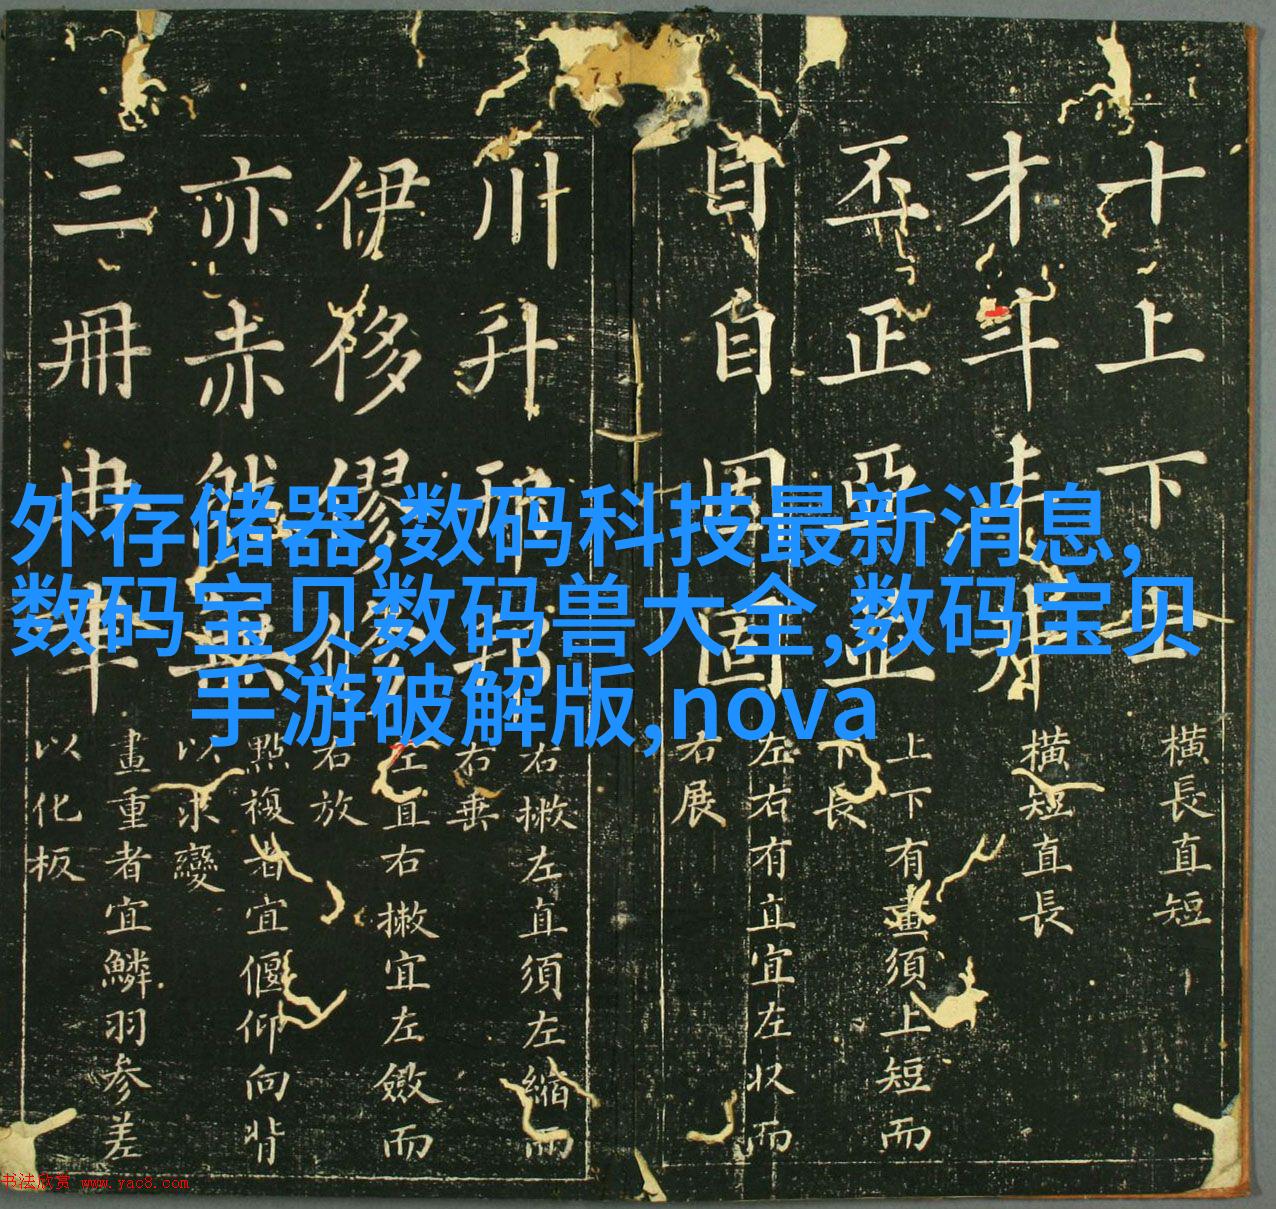 外存储器,数码科技最新消息,
数码宝贝数码兽大全,数码宝贝
手游破解版,nova
十上下
橫長直短
才斗
橫短直長
丕正亞
上下有畫須上短而
下長
目自因固
左右有直宜左收而
右展
川升
右撇左直須左縮而
右垂
伊侈
左直右撇宜左斂而
右放
亦赤然無
點複者宜偃仰向背
以求變
三冊
畫重者宜鱗羽參差
以化板
书法欣赏 www.yac8.com